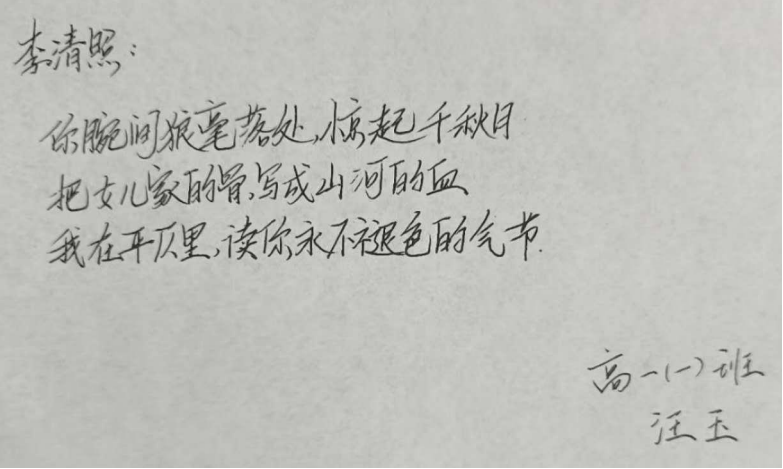 李清照:
你腕间狼毫落处,惊起千秋月
把女儿家的骨,写成山河的血
我在平仄里,读你永不褪色的气节.
高一(一)班
汪玉